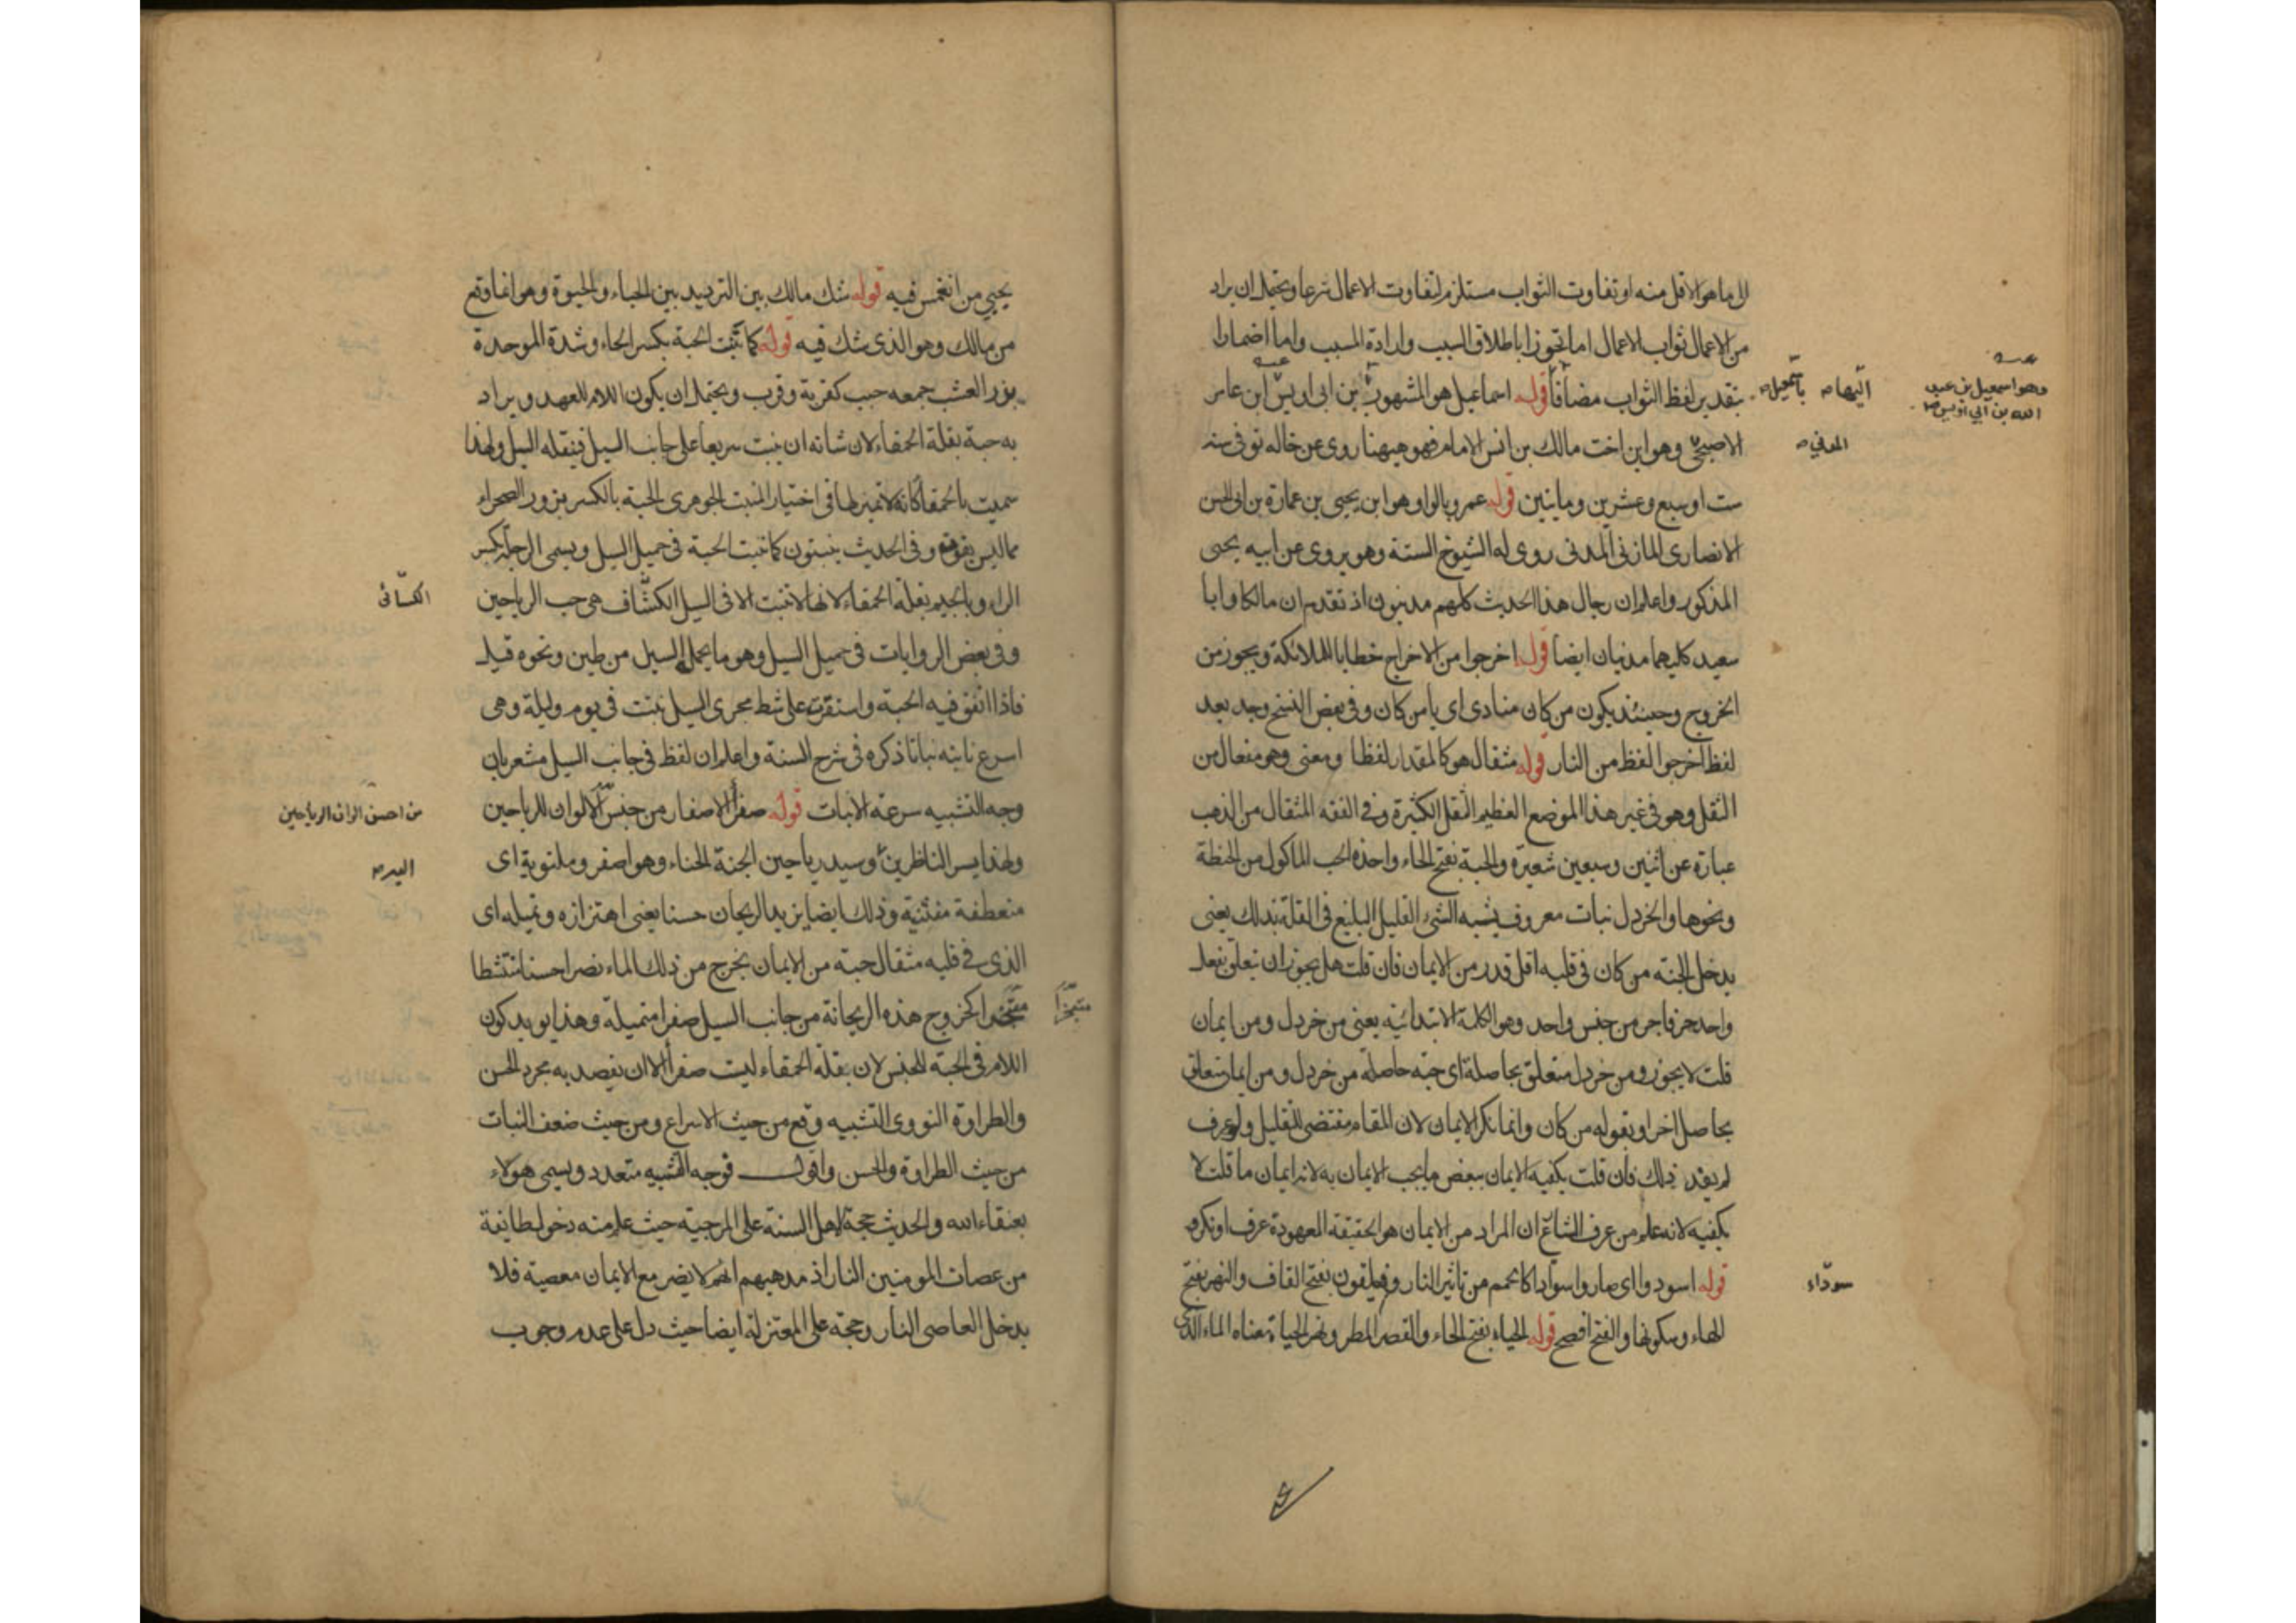 الى ما هو الاقل منه او تفاوت الثواب مستلزم لتفاوت الاعمال شرعا ويحتمل ان يراد
من الاعمال ثواب الاعمال اما تجوزا باطلاق السبب وارادة المسبب واما اضمارا
بتقدير لفظ الثواب مضافا قوله اسماعيل هو المشهور بن ابى اويس ابن عامر
الاصبحى وهو ابن اخت مالك بن انس الامام فهو ههنا روى عن خاله توفى سنه
ست او سبع وعشرين ومايتين قوله عمرو بالواو هو ابن يحيى بن عمارة بن ابى الحسن
الانصارى المازنى المدنى روى له الشيوخ الستة وهو يروى عن ابيه يحيى
المذكور واعلم ان رجال هذا الحديث كلهم مدنيون اذ تقدم ان مالكا وابا
سعيد كليهما مدنيان ايضا قوله اخرجوا من الاخراج خطابا للملائكة ويجوز من
الخروج وحينئذ يكون من كان منادى اى يا من كان وفى بعض النسخ وجد بعد
لفظ اخرجوا لفظ من النار قوله مثقال هو كالمقدار لفظا ومعنى وهو مفعال من
الثقل وهو فى غير هذا الموضع العظيم الثقل الكثيرة وفى الفقه المثقال من الذهب
عبارة عن اثنين وسبعين شعيرة والحبة بفتح الحاء واحدة الحب الماكول من الحنطة
ونحوها والخردل نبات معروف يشبه الشئ القليل البليغ فى القلة بذلك يعنى
يدخل الجنة من كان فى قلبه اقل قدر من الايمان فان قلت هل يجوز ان تتعلق بفعل
واحد حرفا جر من جنس واحد وهو الكلمة الابتدائيه يعنى من خردل ومن ايمان
قلت لا يجوز ومن خردل متعلق بحاصلة اى حبة حاصلة من خردل ومن ايمان متعلق
بحاصل اخر او بقوله من كان وانما نكر الايمان لان المقام مقتضى للتقليل ولو عرف
لم يفد ذلك فان قلت يكفيه الايمان ببعض ما يجب الايمان به لانه ايمان ما قلت لا
يكفيه لانه علم من عرف الشاع ان المراد من الايمان هو الحقيقة المعهودة عرف او نكر
قوله اسودوا اى صاروا سوادا كالحمم من تاثير النار وفيلقون بفتح القاف والنهر بفتح
الهاء وسكونها والفتح افصح قوله الحياء بفتح الحاء والقصر المطر ونهر الحياة معناه الماء الذى
اليها
باسمعيل
وهو اسمعيل بن عبد
الله بن ابي اويس
المدني
سوداء
يحيى من انغمس فيه قوله شك مالك بين الترديد بين الحياء والحيوة وهو انما وقع
من مالك وهو الذى شك فيه قوله كما تنبت الحبة بكسر الحاء وشدة الموحدة
بزر العشب جمعه حبب كقربة وقرب ويحتمل ان يكون اللام للعهد ويراد
به حبة بقلة الحمقاء لان شانه ان ينبت سريعا على جانب السيل فينقله السيل ولهذا
سميت بالحمقا كانه لا تميز لها فى اختيار المنبت الجوهرى الحبة بالكسر بزور الصحراء
مما ليس بقوت وفى الحديث ينبتون كما تنبت الحبة فى حميل السيل ويسمى الرجلة بكسر
الراء وبالجيم بقلة الحمقاء لانها لا تنبت الا فى السيل الكشاف هى حب الرياحين
وفى بعض الروايات فى حميل السيل وهو ما يحمله السيل من طين ونحوه قيل
فاذا اتفق فيه الحبة واستقرت على شط مجرى السيل نبتت فى يوم وليلة وهى
اسرع نابتة نباتا ذكره فى شرح السنة واعلم ان لفظ فى جانب السيل مشعر بان
وجه التشبيه سرعة الانبات قوله صفرا الاصفار من جنس الالوان للرياحين
ولهذا يسر الناظرين وسيد رياحين الجنة الحناء وهو اصفر وملتوية اى
منعطفة منثنية وذلك ايضا يزيد الريحان حسنا يعنى اهتزازه وتميله اى
الذى فى قلبه مثقال حبة من الايمان يخرج من ذلك الماء نضرا حسنا منتشطا
متبخترا كخروج هذه الريحانة من جانب السيل صفرا متميلة وهذا يويد كون
اللام فى الحبة للجنس لان بقلة الحمقاء ليست صفرا الا ان يقصد به مجرد الحسن
والطراوة النووى التشبيه وقع من حيث الاسراع ومن حيث ضعف النبات
من حيث الطراوة والحسن واقول فوجه الشبه متعدد ويسمى هولاء
بعتقاء الله والحديث حجة لاهل السنة على المرجية حيث علم منه دخول طائفة
من عصات المومنين النار اذ مذهبهم انه لا يضر مع الايمان معصية فلا
يدخل العاصى النار وحجة على المعتزلة ايضا حيث دل على عدم وجوب
الكسائى
من احسن الوان الرياحين
متبخترا